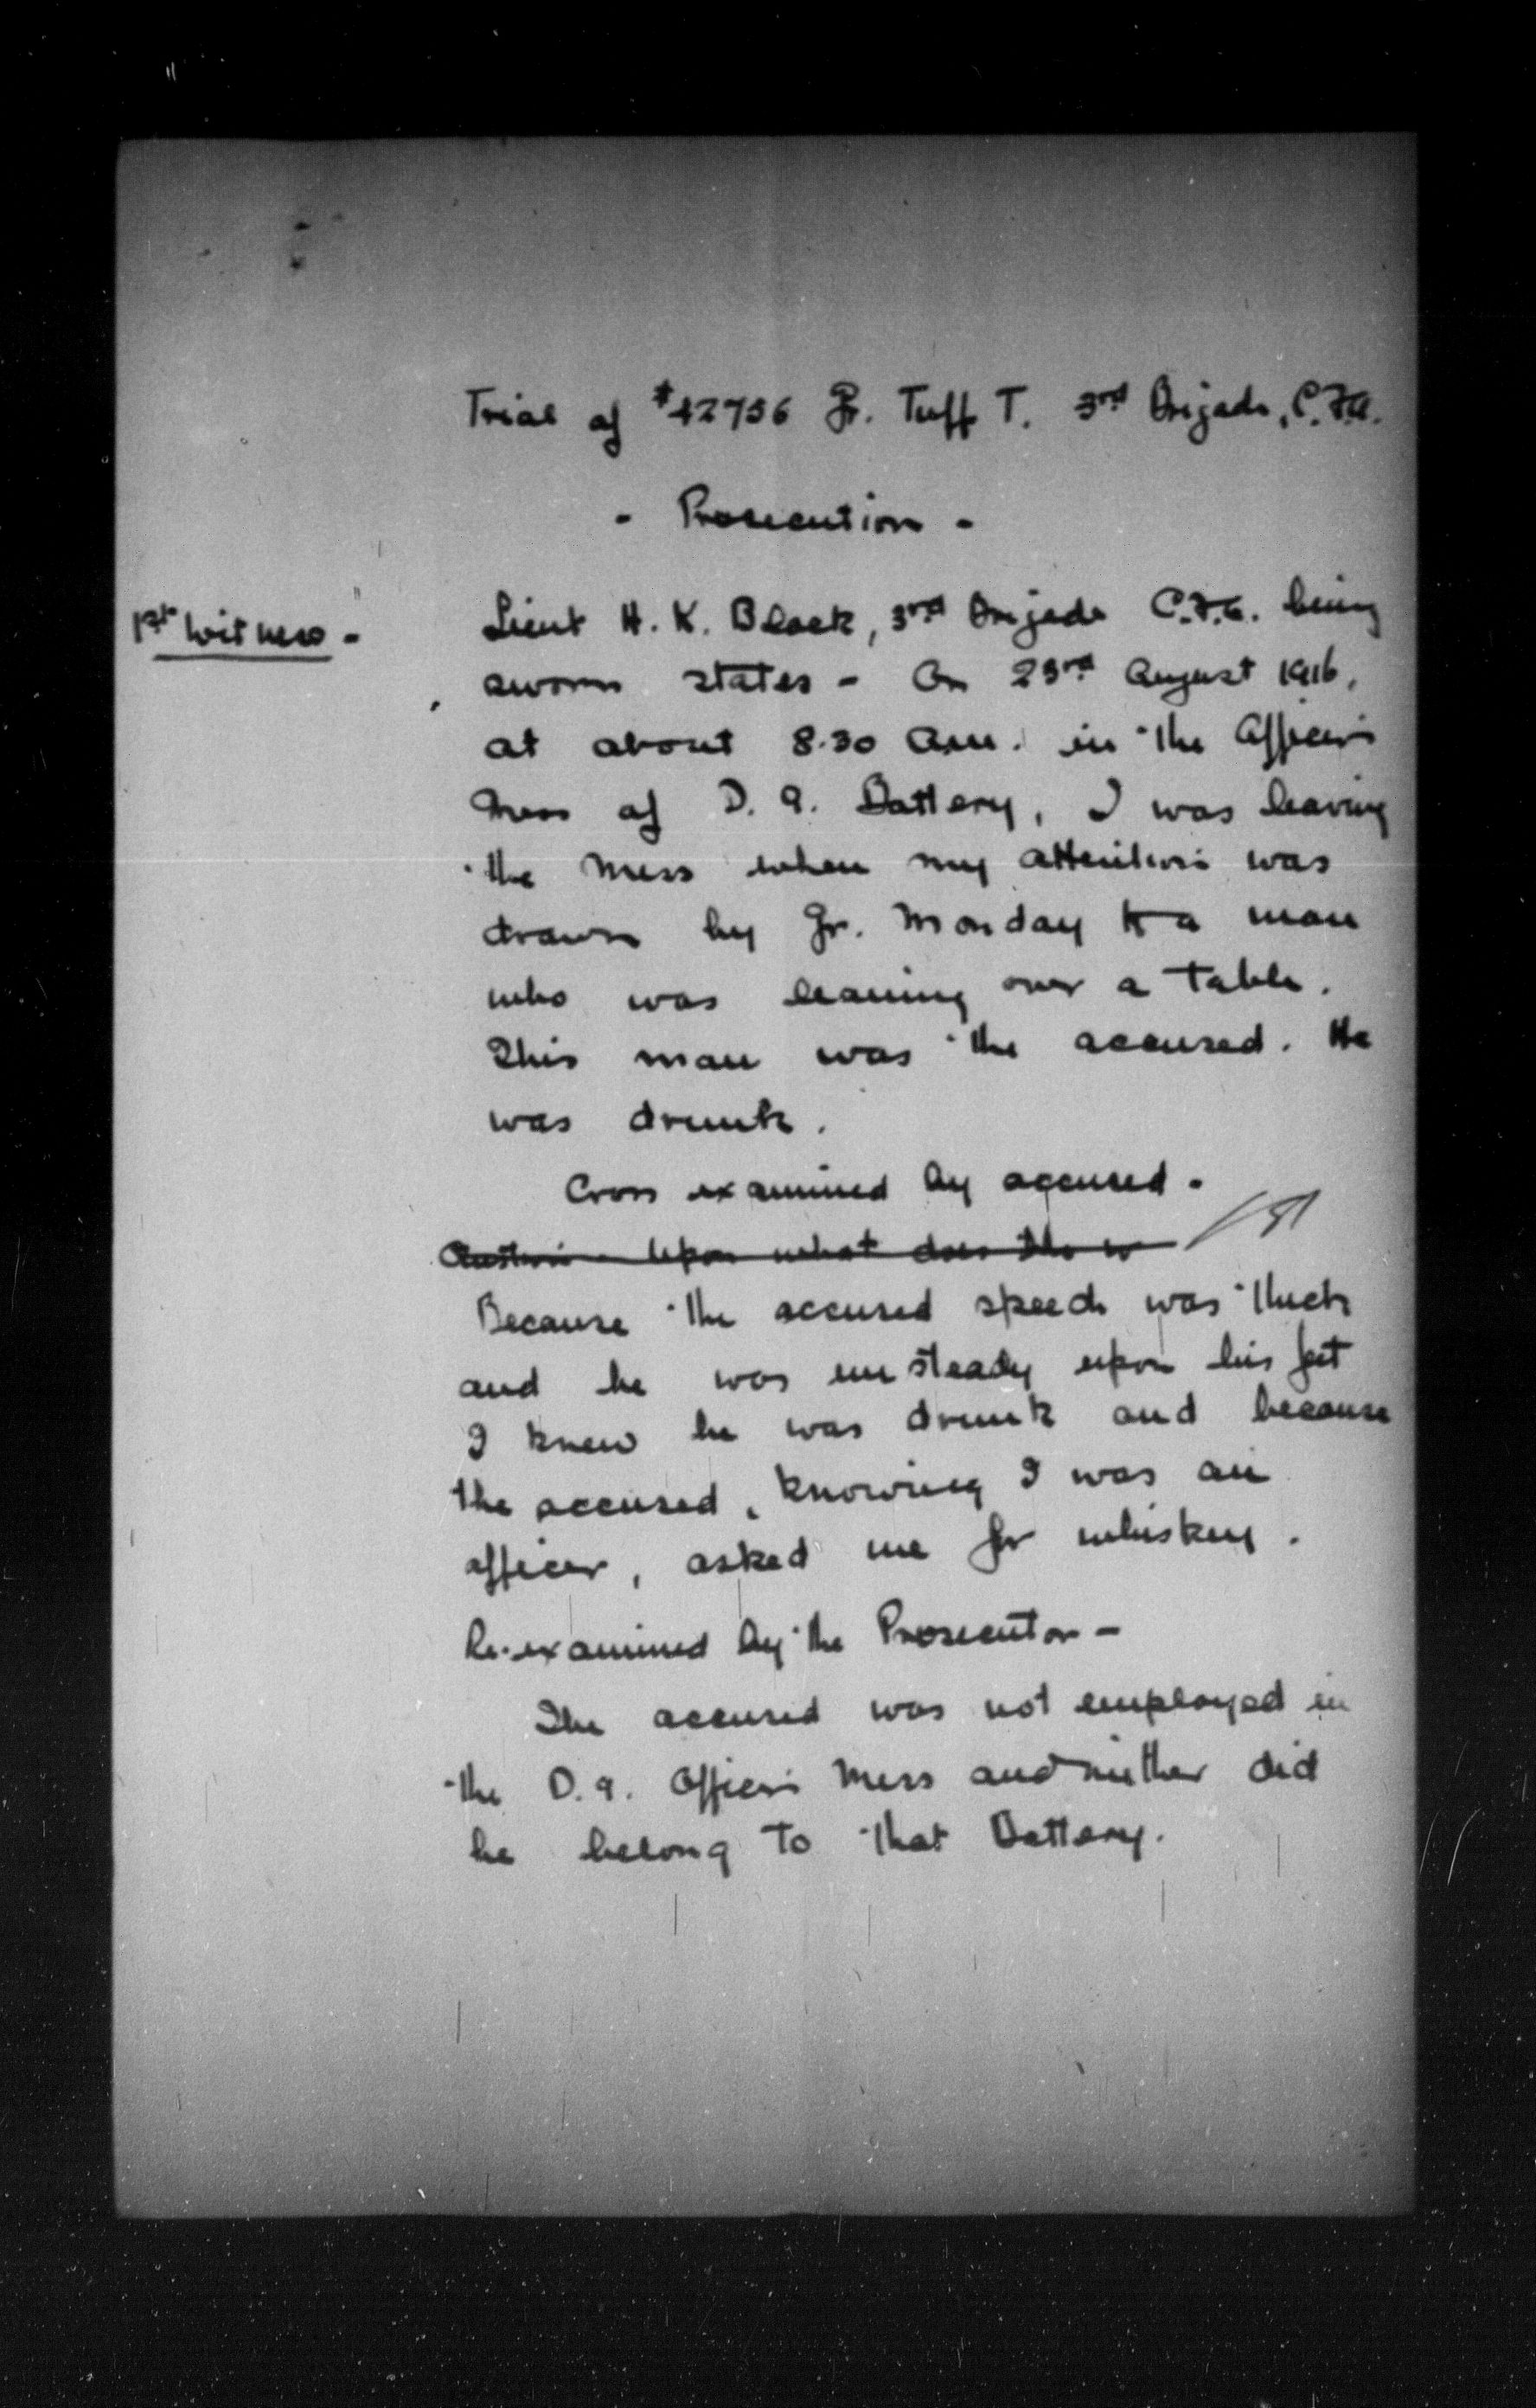 Trial of #42756 Gr. Tuff T. 3rd Brigade, C.F.A.
- Prosecution -
1st Witness -
Lieut H. K. Black, 3rd Brigade C.F.A. being
sworn states - On 23rd August 1916,
at about 8.30 a.m. in the Officers
Mess of D. 9. Battery, I was leaving
the mess when my attention was
drawn by Gr. Monday to a man
who was leaning over a table.
This man was the accused. He
was drunk.
Cross examined by accused -
Question - Upon what does the w
Because the accused speech was thick
and he was unsteady upon his feet
I knew he was drunk and because
the accused, knowing I was an
officer, asked me for whiskey.
Re-examined by the Prosecutor -
The accused was not employed in
the D. 9. Officers Mess and neither did
he belong to that Battery.